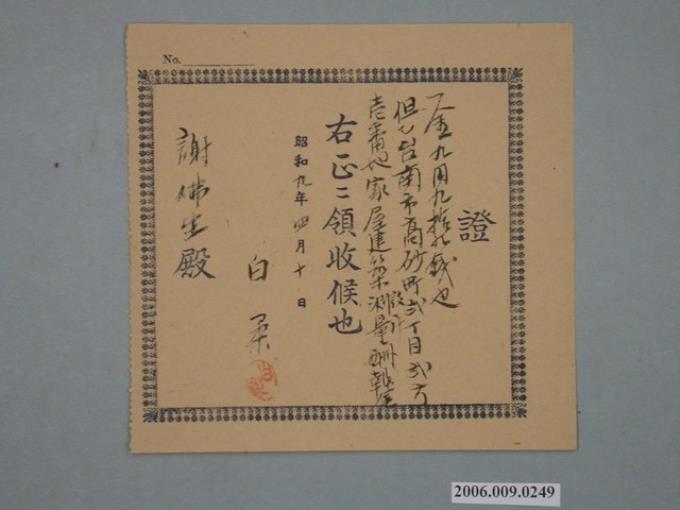 No.
證
一金九円九拾九戔也
但シ台南市高砂町弍丁目弍六
壱番地家屋建築設計測量酬報金
右正ニ領收候也
昭和九年四月十 日
白 柔
謝佛生殿
2006.009.0249